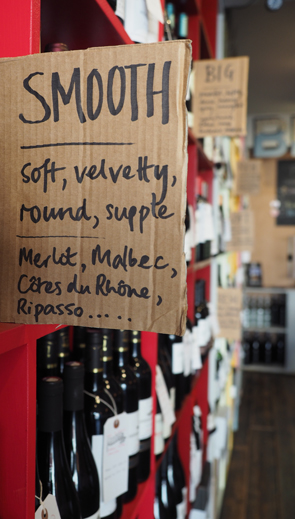 SMOOTH
soft, velvetty,
round, supple
Merlot, Malbec,
Côtes du Rhône,
Ripasso......
BIG